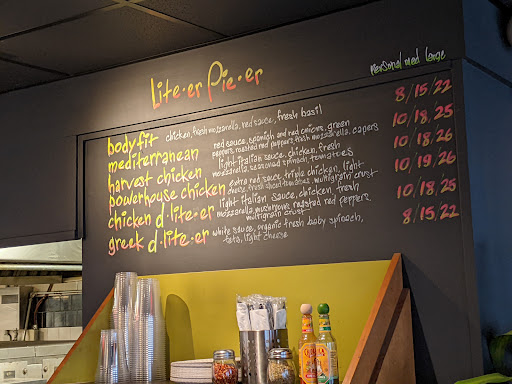 Lite·er Pie·er
personal med large
body fit chicken, fresh mozzarella, red sauce, fresh basil 8/15/22
mediterranean red sauce, spanish and red onions, green
peppers, roasted red peppers, fresh mozzarella, capers 10/18.25
harvest chicken light italian sauce, chicken, fresh
mozzarella, seasoned spinach, tomatoes 10/18.26
powerhouse chicken extra red sauce, triple chicken, light
cheese, fresh sliced tomatoes, multigrain crust 10/19.26
chicken d·lite·er light italian sauce, chicken, fresh
mozzarella, mushrooms, roasted red peppers,
multigrain crust 10/18/25
greek d·lite·er white sauce, organic fresh baby spinach,
feta, light cheese 8/15.22